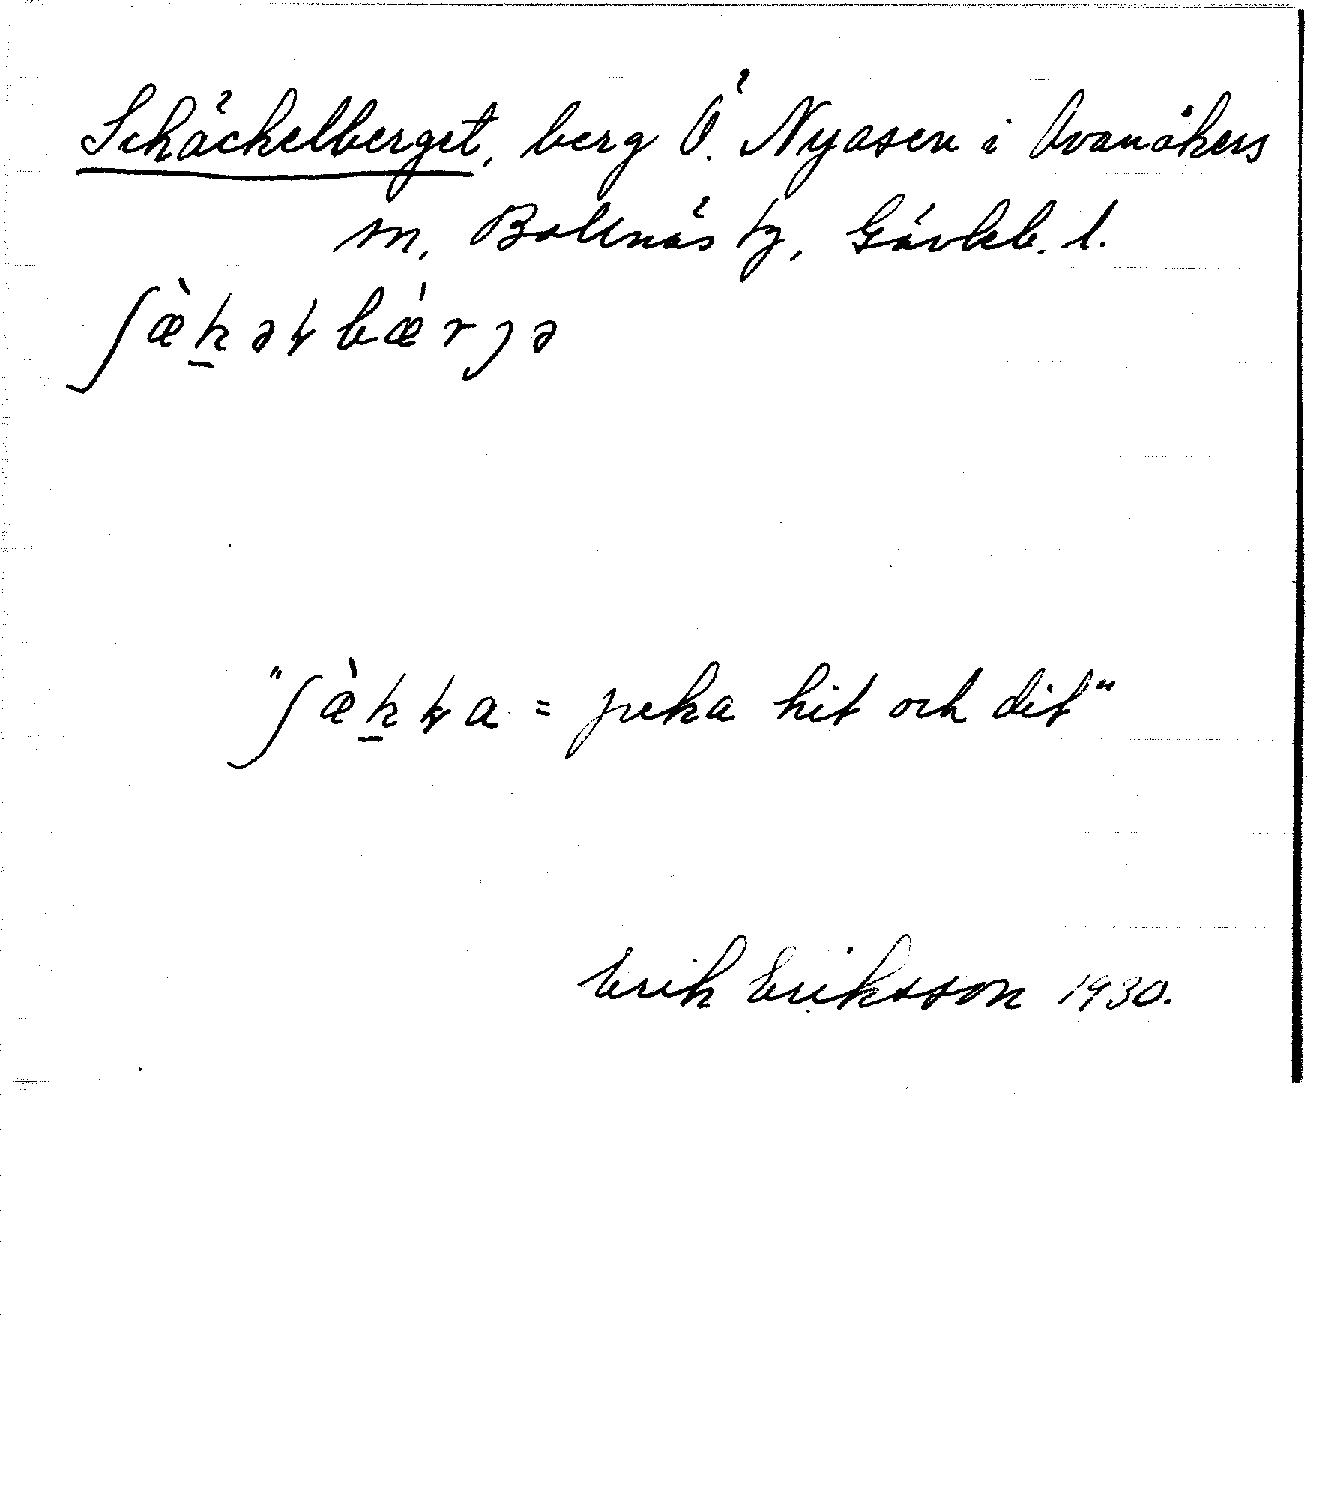 Schäckelberget, berg Ö. Nyåsen i Ovanåkers
sn, Bollnäs tg, Gävleb. l.
ʃæ̀k̲əɽbæ̀rjə
"ʃæ̀k̲ɽa = peka hit och dit"
Erik Eriksson 1930.